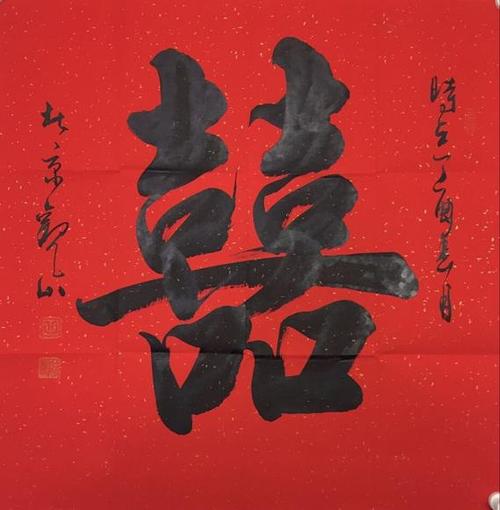 時在丁酉春月
囍
京山